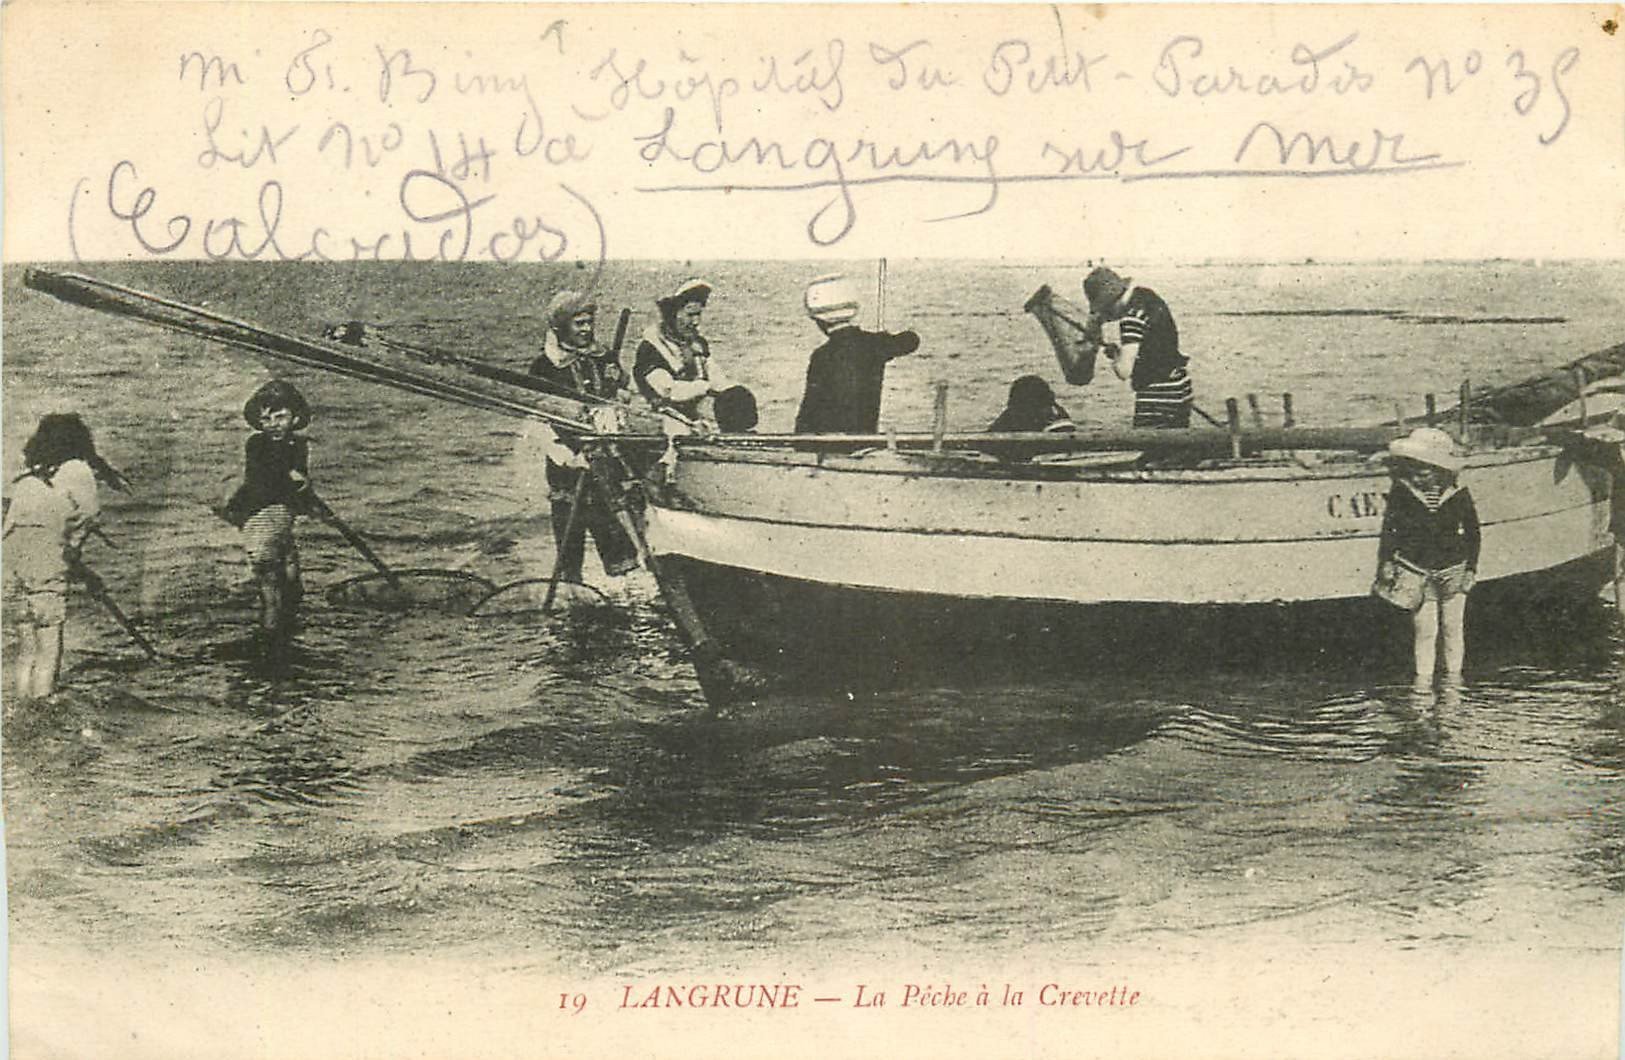 Hôpital du Petit-Paradis n° 35
Lit n° 14 à Langrune sur Mer
(Calvados)
CAEN
19 LANGRUNE — La Pêche à la Crevette